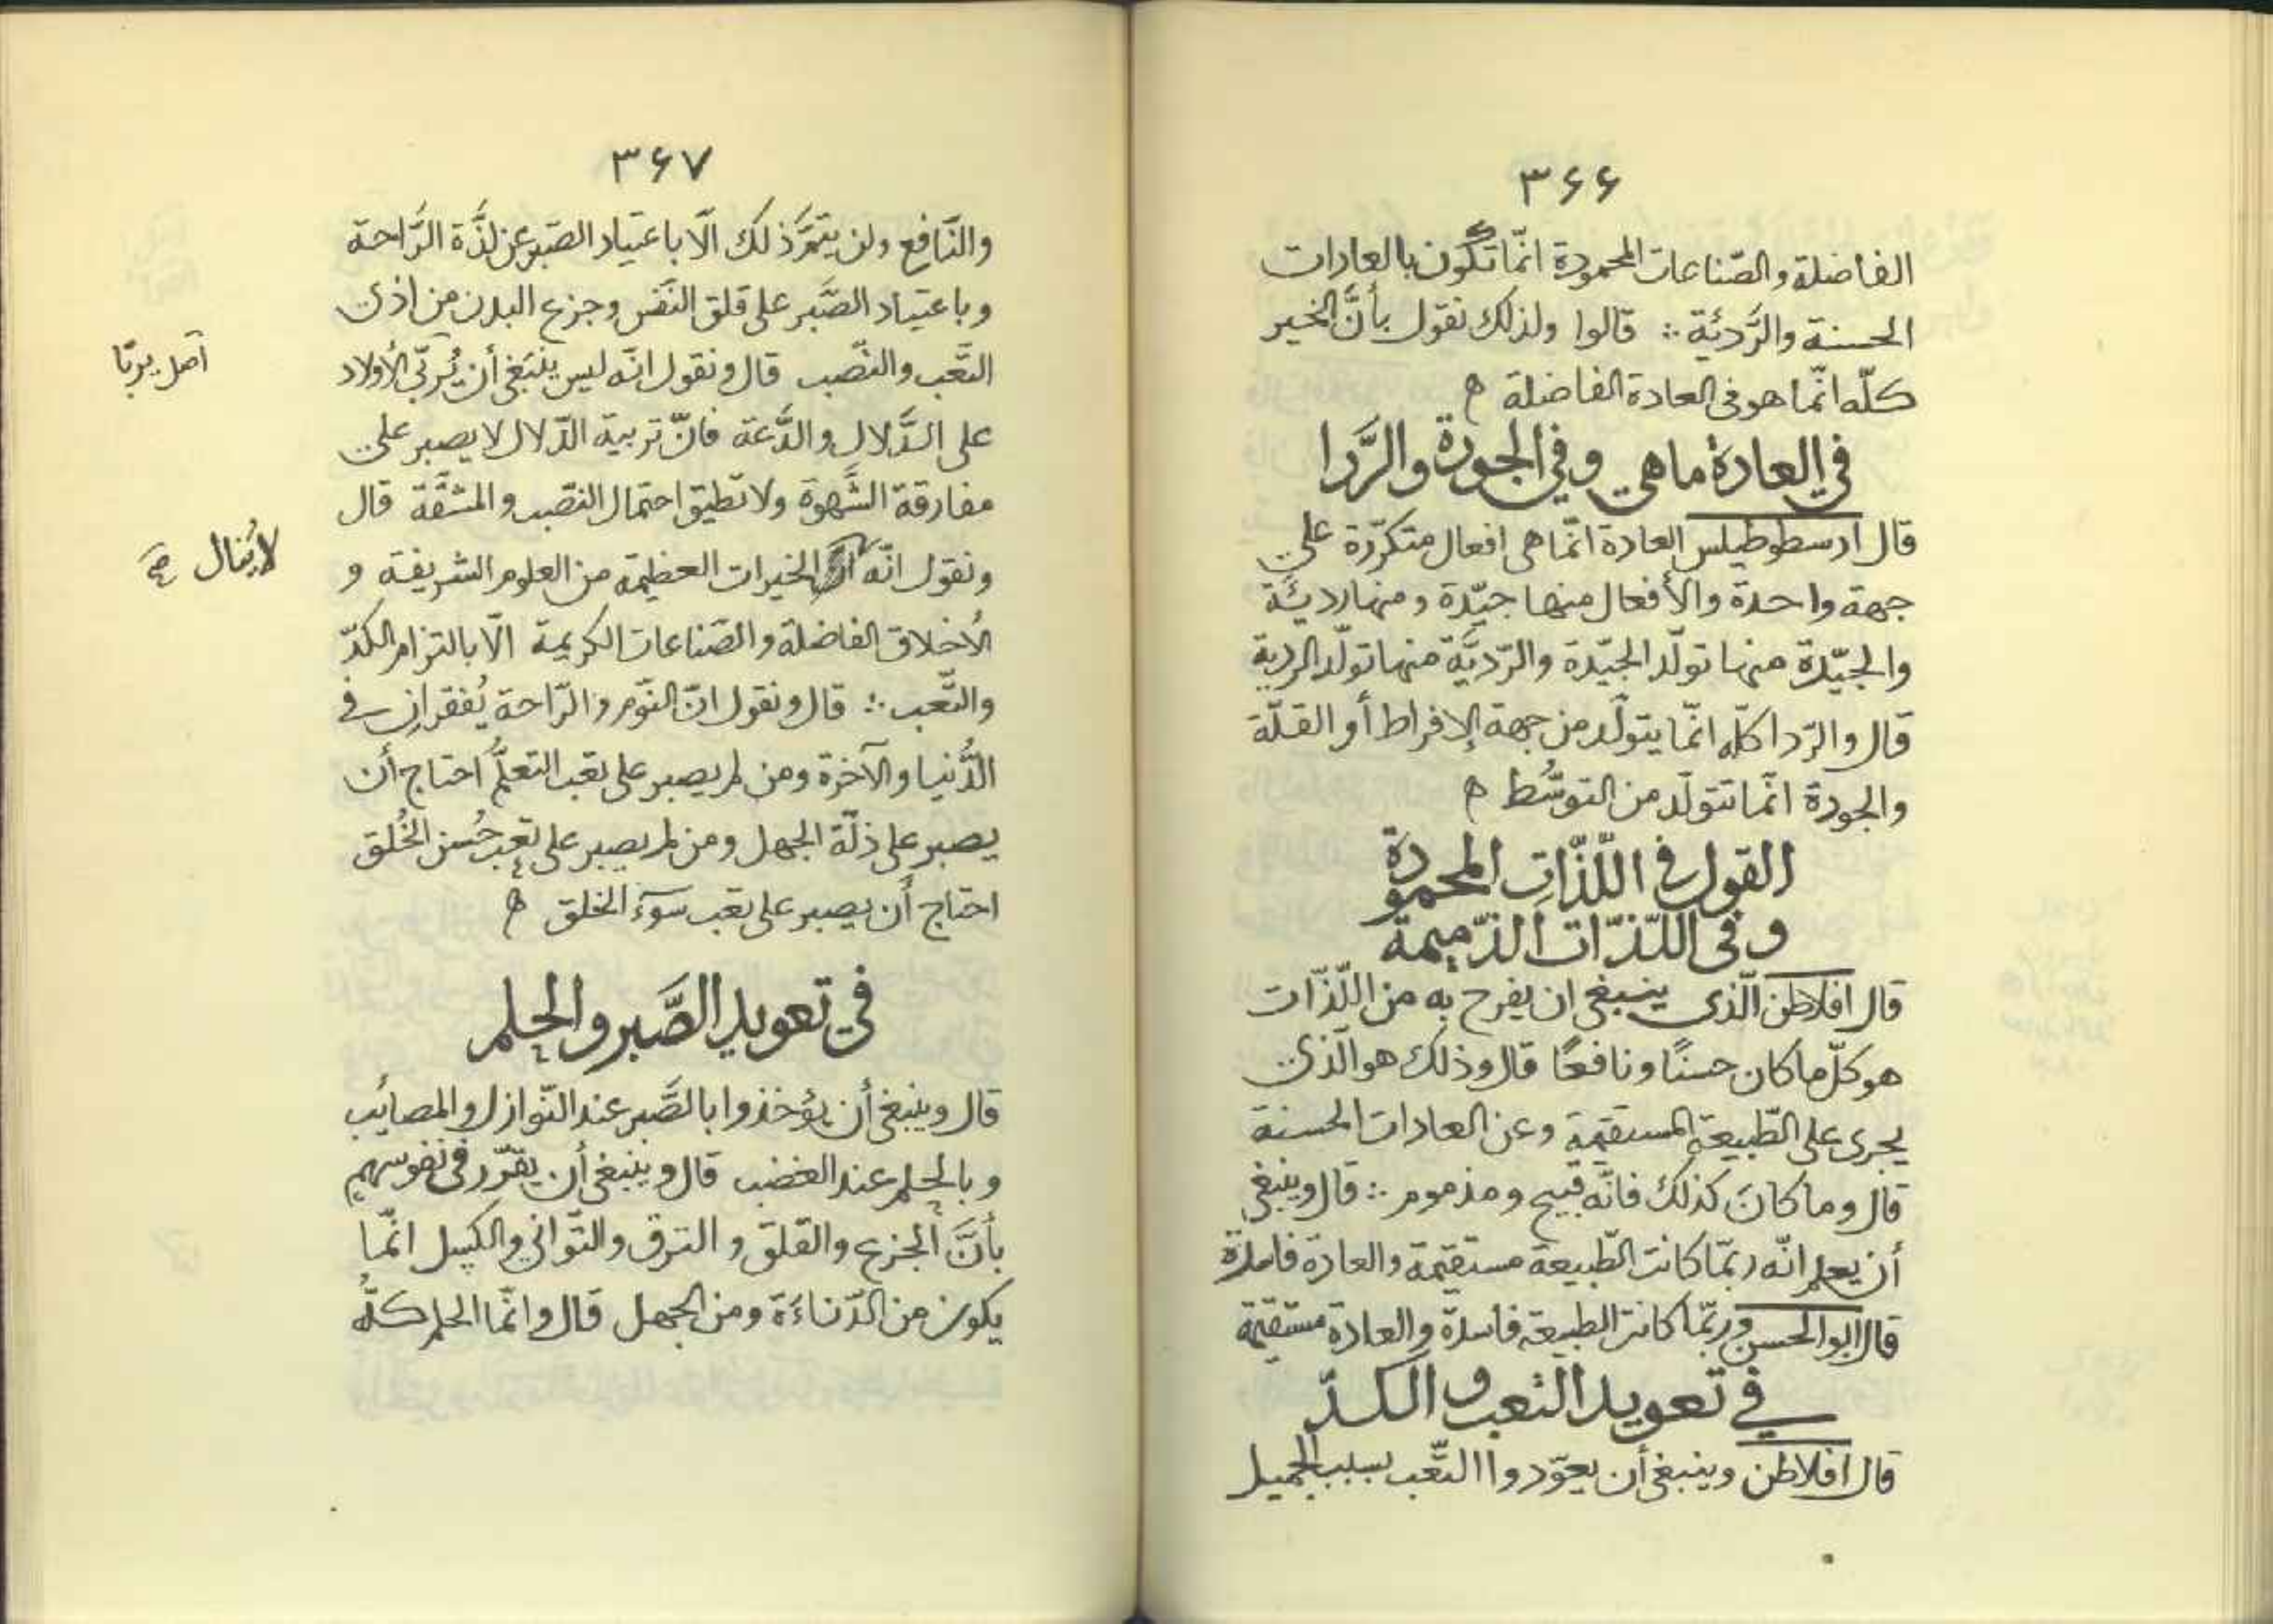 ۳۶۶
الفاضلة والصّناعات المحمودة انّما تكون بالعادات
الحسنة والرَّدئة ∴ قالوا ولذلك نقول بأنَّ الخير
كلّه انّما هو فى العادة الفاضلة ه
في العادة ماهي وفي الجودة والرَّدا
قال ارسطوطيلس العادة انّما هى افعال متكرّرة على
جهة واحدة والأفعال منها جيّدة ومنها رديئة
والجيّدة منها تولّد الجيّدة والرّديَّة منها تولّد الردية
قال والرّدا كلّه انّما يتولّد من جهة الإفراط أو القلّة
والجودة انّما تتولّد من التوسُّط ه
القول في اللّذّات المحمودة
وفى اللّذّات الذّميمة
قال افلاطن الّذى ينبغى ان يفرح به من اللّذّات
هو كلّ ما كان حسنًا ونافعًا قال وذلك هو الّذى
يجرى على الطّبيعة المستقيمة وعن العادات الحسنة
قال وما كانَ كذلك فانّه قبيح ومذموم ∴ قال وينبغى
أن يعلم انّه ربّما كانت الطّبيعة مستقيمة والعادة فاسدة
قال ابو الحسن وربّما كانت الطبيعة فاسدة والعادة مستقيمة
في تعويد التعب والكدّ
قال افلاطن وينبغى أن يعوّدوا التّعب بسبب الجميل
۳۶۷
والنّافع ولن يتمرَّ ذلك الّا باعتياد الصّبر عن لذَّة الرَّاحة
وباعتياد الصَّبر على قلق النّفس وجزع البدن من اذى
التّعب والنّصب قال ونقول انّه ليس ينبغى أن يُربّى الأولاد
اصل يربّا
على الدَّلال والدَّعة فانّ تربية الدّلال لا يصبر على
مفارقة الشَّهوة ولا تطيق احتمال النّصب والمشقَّة قال
ونقول انّه الخيرات العظيمة من العلوم الشريفة و
لا يُنال صح
الأخلاق الفاضلة والصّناعات الكريمة الّا بالتزام الكدّ
والتّعب ∴ قال ونقول انّ النّوم والرّاحة يُفقران في
الدُّنيا والآخرة ومن لم يصبر على تعب التعلّم احتاج أن
يصبر على ذلّة الجهل ومن لم يصبر على تعب حُسن الخُلق
احتاج أن يصبر على تعب سوء الخلق ه
في تعويد الصَّبر والحلم
قال وينبغى أن يؤخذوا بالصَّبر عند النّوازل والمصائب
وبالحلم عند الغضب قال وينبغى أن يقرّر فى نفوسهم
بأنَّ الجزع والقلق و الترق والتّوانى والكسل انّما
يكون من الدّناءَة ومن الجهل قال وانّما الحلم كلّه